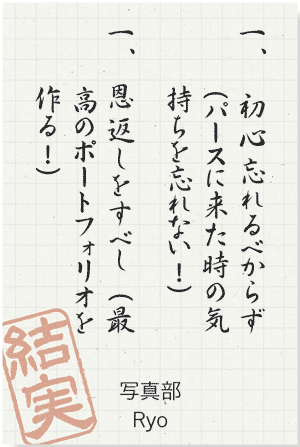 一、初心忘れるべからず
(パースに来た時の気
持ちを忘れない!)
一、恩返しをすべし(最
高のポートフォリオを
作る!)
写真部
Ryo
結実